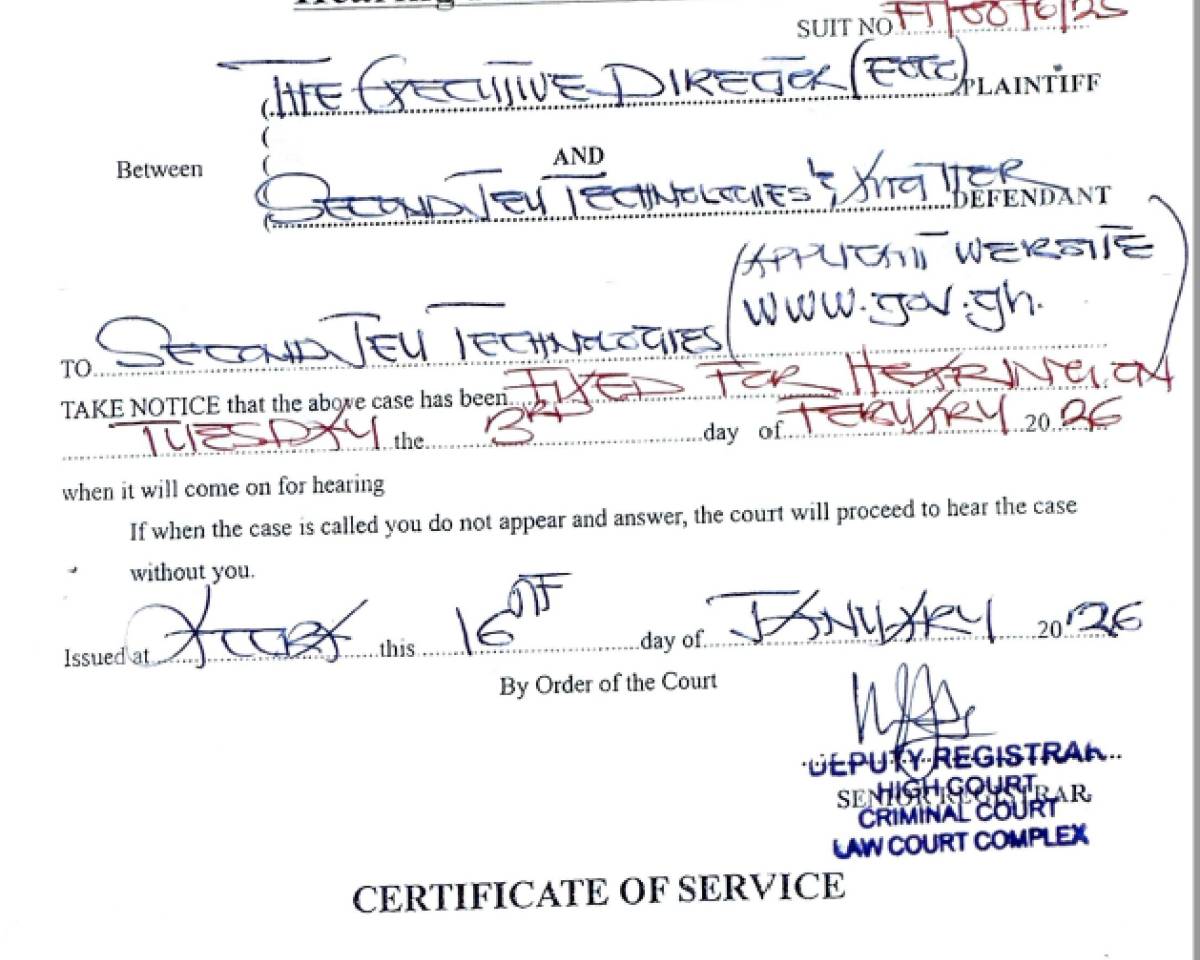 Hearing
SUIT NO FT/0076/25
THE EXECUTIVE DIRECTOR (EOCO) PLAINTIFF
Between
AND
SECOND JEU TECHNOLOGIES & ANOTHER DEFENDANT
APPLICANT WEBSITE
www.gov.gh.
TO SECOND JEU TECHNOLOGIES
TAKE NOTICE that the above case has been FIXED FOR HEARING ON
TUESDAY the 3RD day of FEBRUARY 2026
when it will come on for hearing
If when the case is called you do not appear and answer, the court will proceed to hear the case
without you.
Issued at ACCRA this 16TH day of JANUARY 2026
By Order of the Court
DEPUTY REGISTRAR
SENIOR REGISTRAR
HIGH COURT
CRIMINAL COURT
LAW COURT COMPLEX
CERTIFICATE OF SERVICE